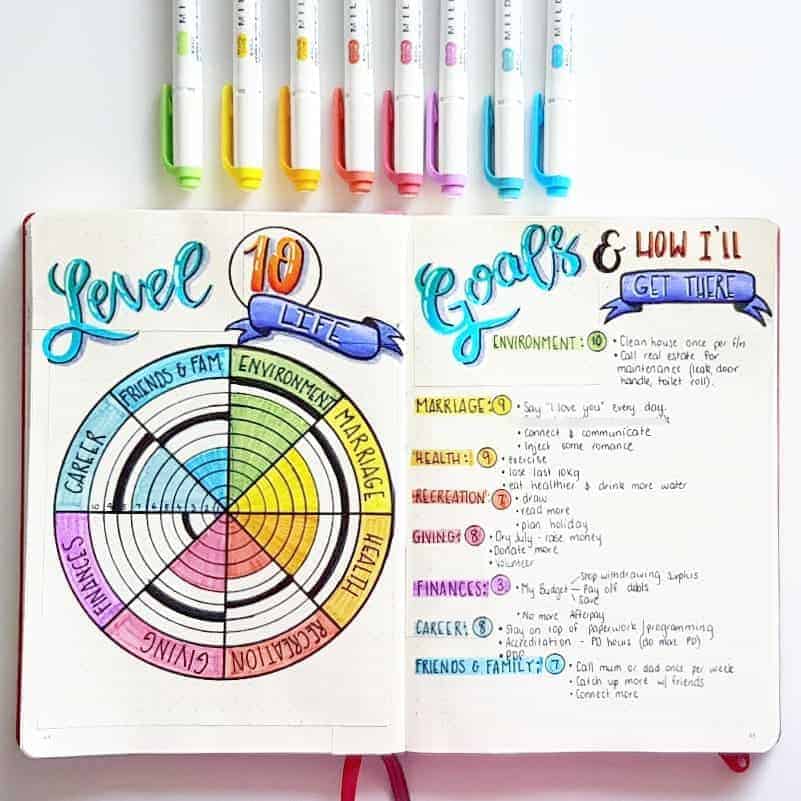 MILD
MILD
MILD
MILD
MILD
MILD
MILD
MILD
Level 10
LIFE
FRIENDS & FAM
ENVIRONMENT
MARRIAGE
HEALTH
RECREATION
GIVING
FINANCES
CAREER
Goals & HOW I'LL
GET THERE
ENVIRONMENT: 10
• Clean house once per f/n
• Call real estate for
maintenance (leak, door
handle, toilet roll).
MARRIAGE: 9
• Say "I love you" every day.
• Connect & communicate
• Inject some romance
HEALTH: 9
• exercise
• lose last 10kg
• eat healthier & drink more water
RECREATION: 7
• draw
• read more
• plan holiday
GIVING: 8
• Dry July - raise money
• Donate more
• Volunteer
FINANCES: 3
• My Budget
Stop withdrawing surplus
Pay off debts
Save
• No more Afterpay
CAREER: 8
• Stay on top of paperwork / programming
• Accreditation - PD hours (do more PD)
• PDP
FRIENDS & FAMILY: 7
• Call mum or dad once per week
• Catch up more w/ friends
• Connect more